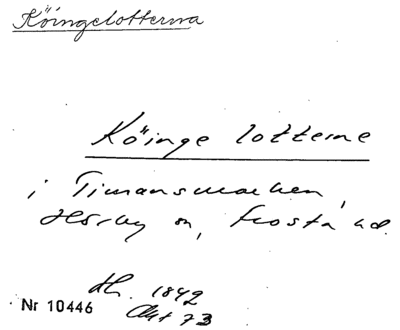 Köingelotterna
Köinge lotterne
i Timansmarken,
Hörby sn, Frosta hd.
Lh. 1842
Akt 73
Nr 10446